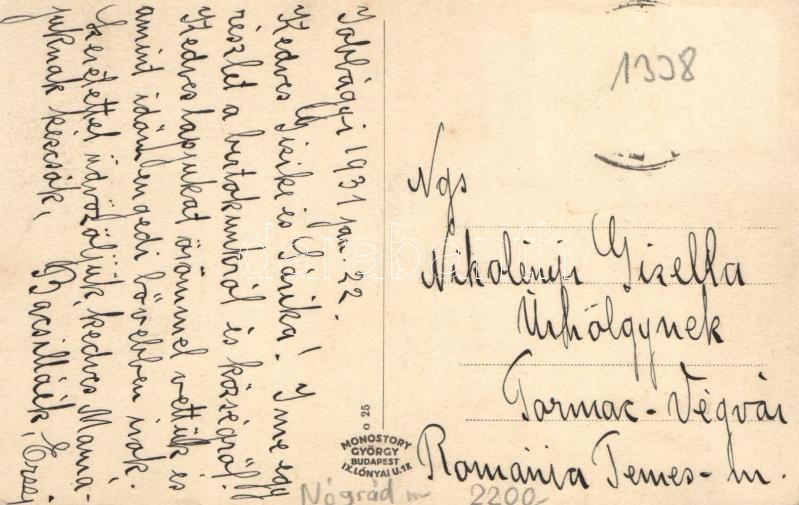 Jobbágyi 1931 jan. 22.
Kedves Gizike és Sárika! Íme egy
részlet a birtokunkról és községről!
Kedves lapjukat örömmel vettük és
amint időm engedi bővebben írok.
Szeretettel üdvözöljük, kedves Mama-
juknak kézcsók,
Bacsilláék, Erzsi
1338
Ngs
Nikolényi Gizella
Úrhölgynek
Tormac-Végvár
Románia Temes-m.
o 25
MONOSTORY
GYÖRGY
BUDAPEST
IX. LÓNYAI U. 17.
Nógrád m
2200-
darabanth